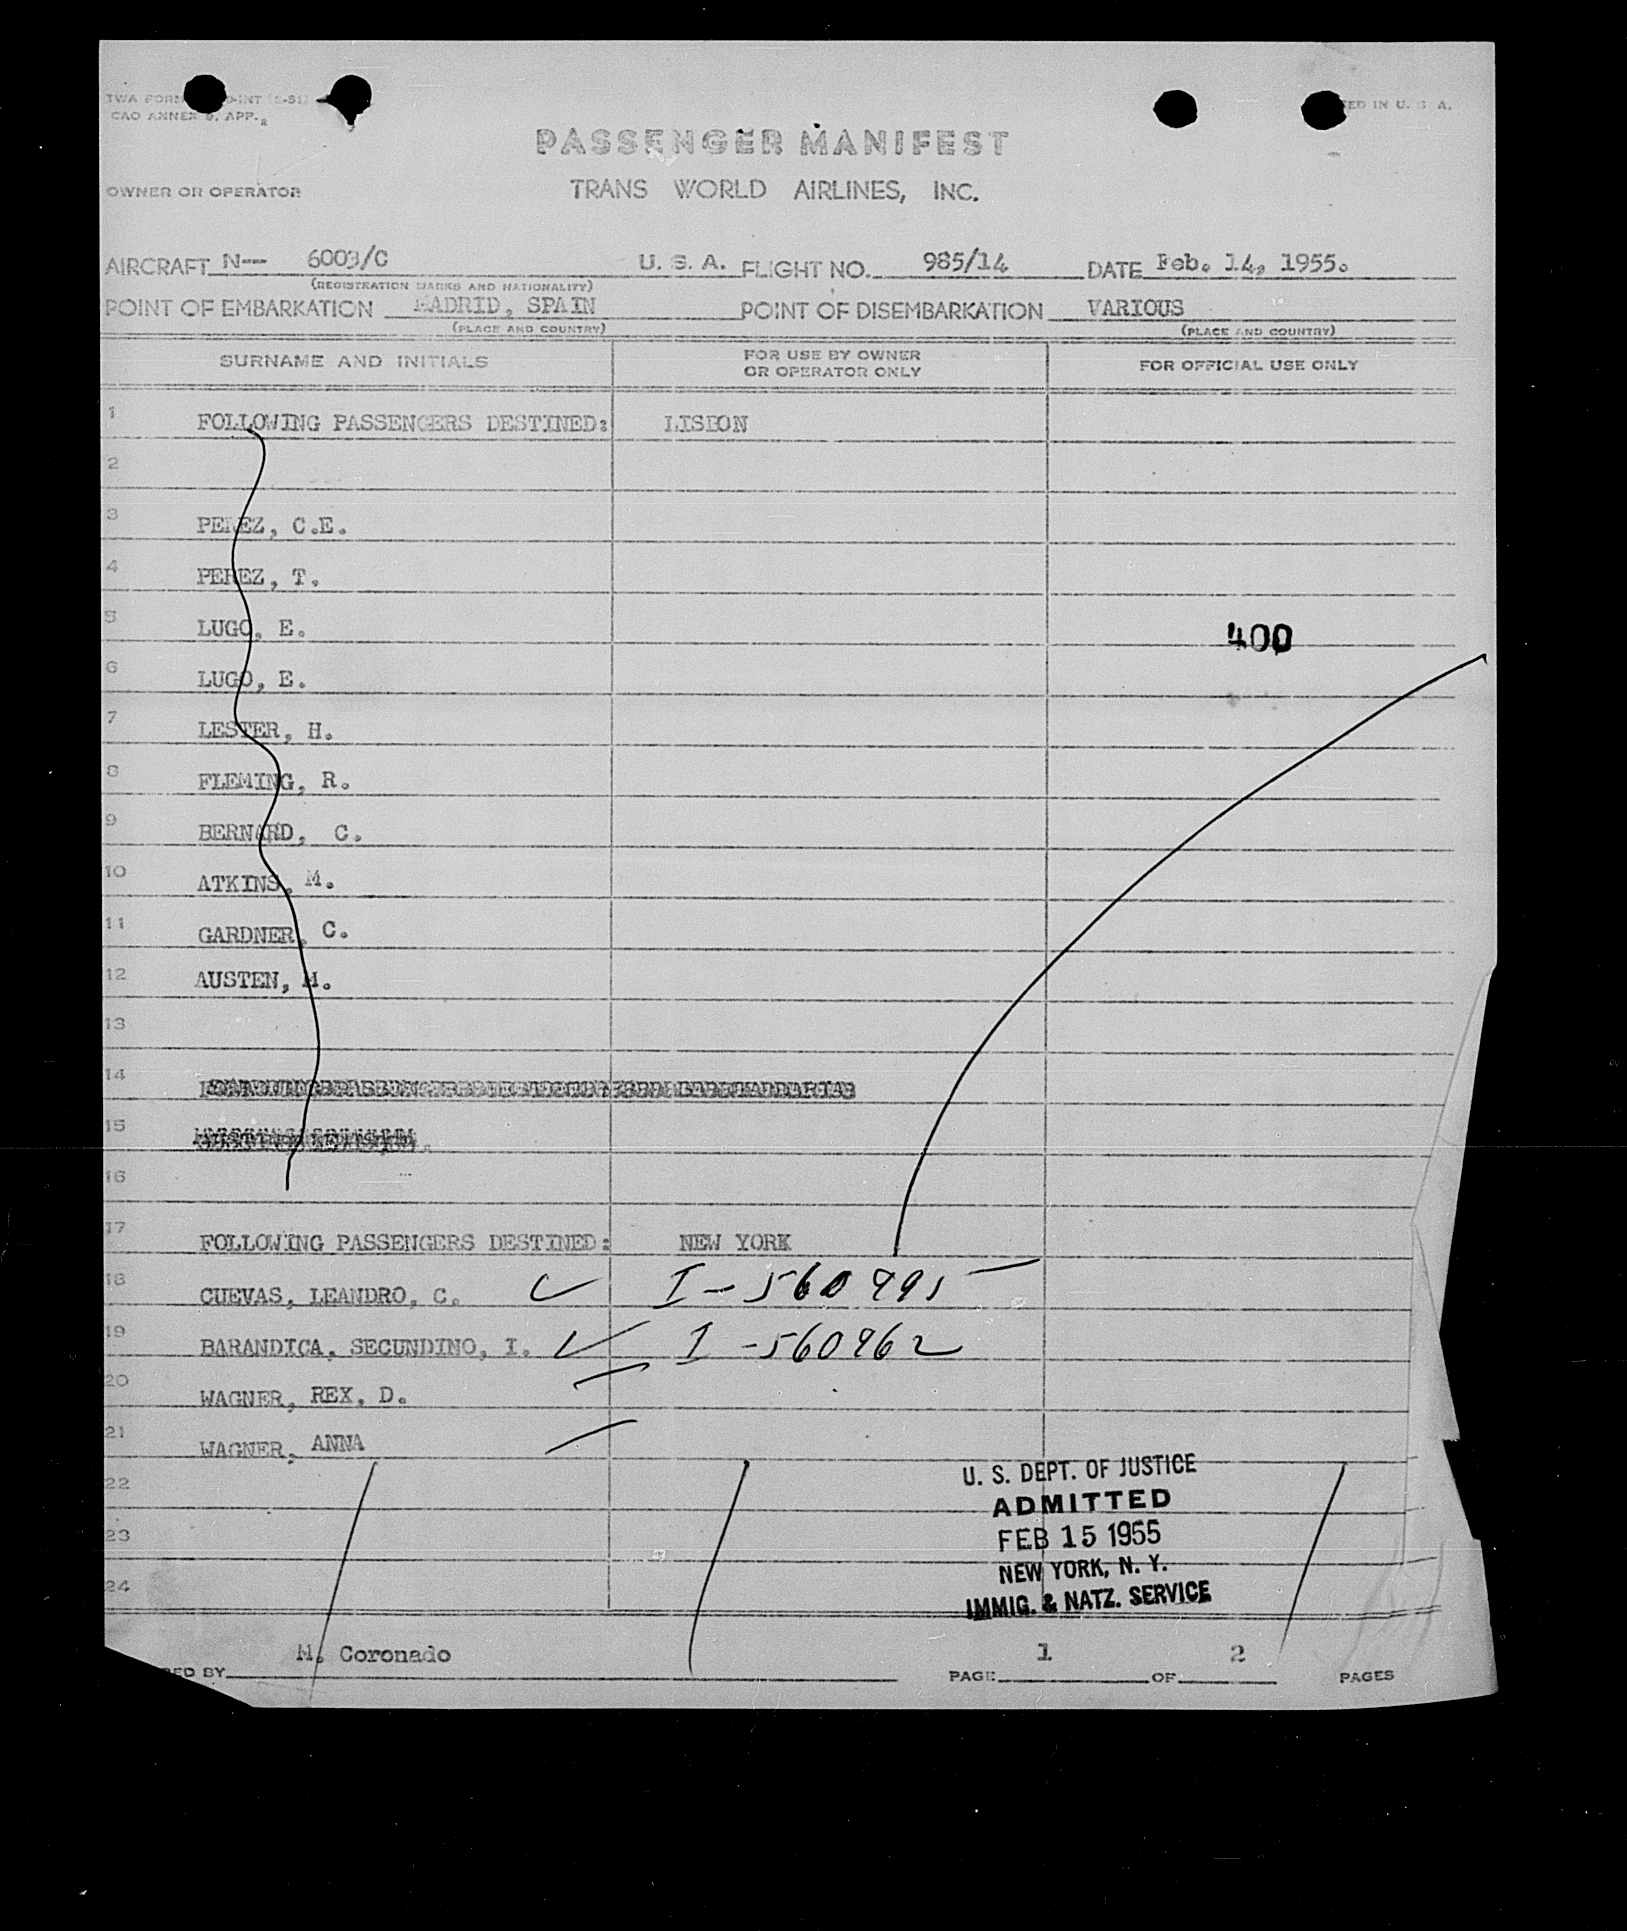 TWA FORM
CAO ANNEX 9, APP. 2
PASSENGER MANIFEST
OWNER OR OPERATOR TRANS WORLD AIRLINES, INC.
AIRCRAFT N-- 6003/C U. S. A. FLIGHT NO. 985/14 DATE Feb. 14, 1955.
(REGISTRATION MARKS AND NATIONALITY)
POINT OF EMBARKATION MADRID, SPAIN POINT OF DISEMBARKATION VARIOUS
(PLACE AND COUNTRY) (PLACE AND COUNTRY)
SURNAME AND INITIALS FOR USE BY OWNER OR OPERATOR ONLY FOR OFFICIAL USE ONLY
1 FOLLOWING PASSENGERS DESTINED: LISBON
2
3 PEREZ, C.E.
4 PEREZ, T.
5 LUGO, E. 400
6 LUGO, E.
7 LESTER, H.
8 FLEMING, R.
9 BERNARD, C.
10 ATKINS, M.
11 GARDNER, C.
12 AUSTEN, M.
13
14
15
16
17 FOLLOWING PASSENGERS DESTINED: NEW YORK
18 CUEVAS, LEANDRO, C. I-560995
19 BARANDICA, SECUNDINO, I. I-560962
20 WAGNER, REX, D.
21 WAGNER, ANNA
22
23
24
U. S. DEPT. OF JUSTICE
ADMITTED
FEB 15 1955
NEW YORK, N. Y.
IMMIG. & NATZ. SERVICE
BY M. Coronado PAGE 1 OF 2 PAGES